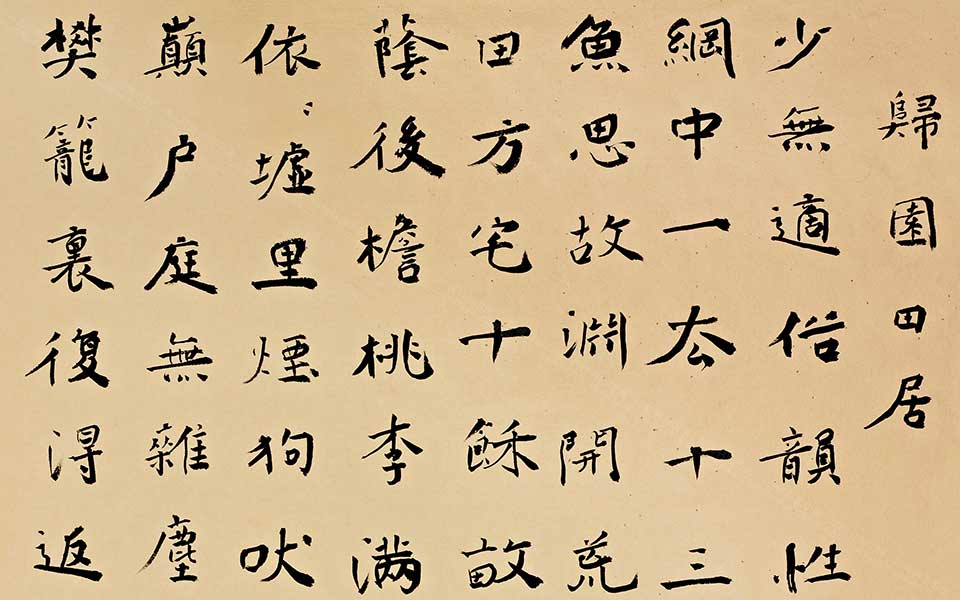 歸園田居
少無適俗韻性
網中一去十三
魚思故淵開荒
田方宅十餘畝
蔭後檐桃李滿
依〻墟里煙狗吠
巔户庭無雜塵
樊籠裏復得返